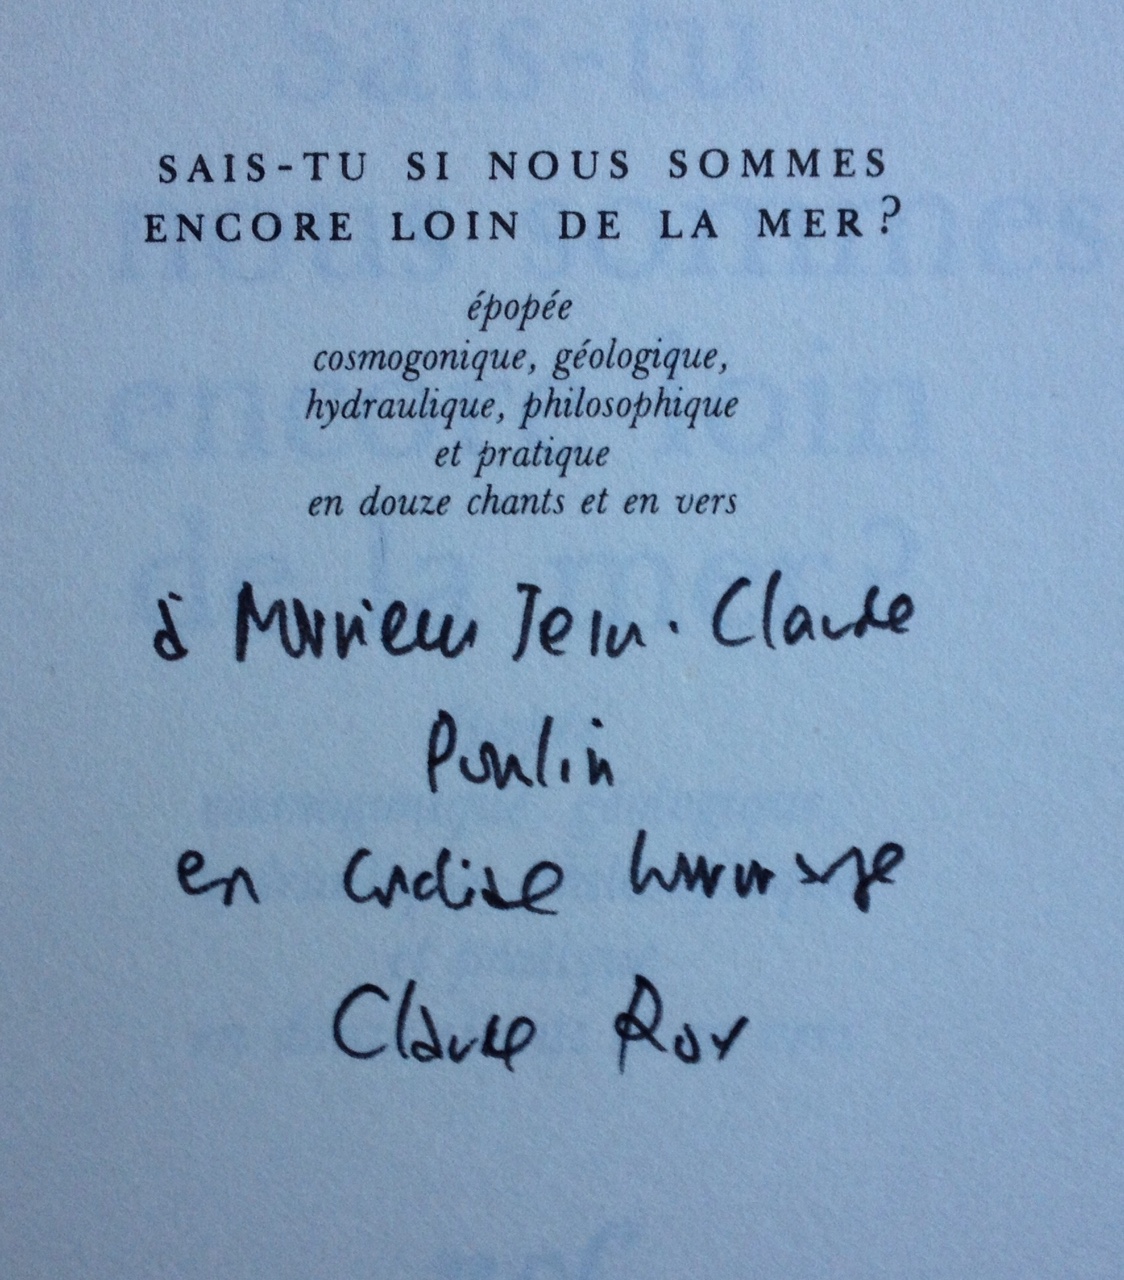 SAIS-TU SI NOUS SOMMES
ENCORE LOIN DE LA MER?
épopée
cosmogonique, géologique,
hydraulique, philosophique
et pratique
en douze chants et en vers
à Monsieur Jean-Claude
Poulin
en cordial hommage
Claude Roy